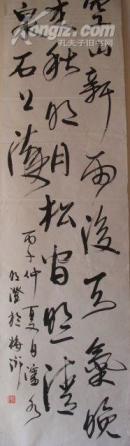 空山新雨後天氣晚
来秋明月松間照清
泉石上流
丙子仲夏月
孔夫子旧书网